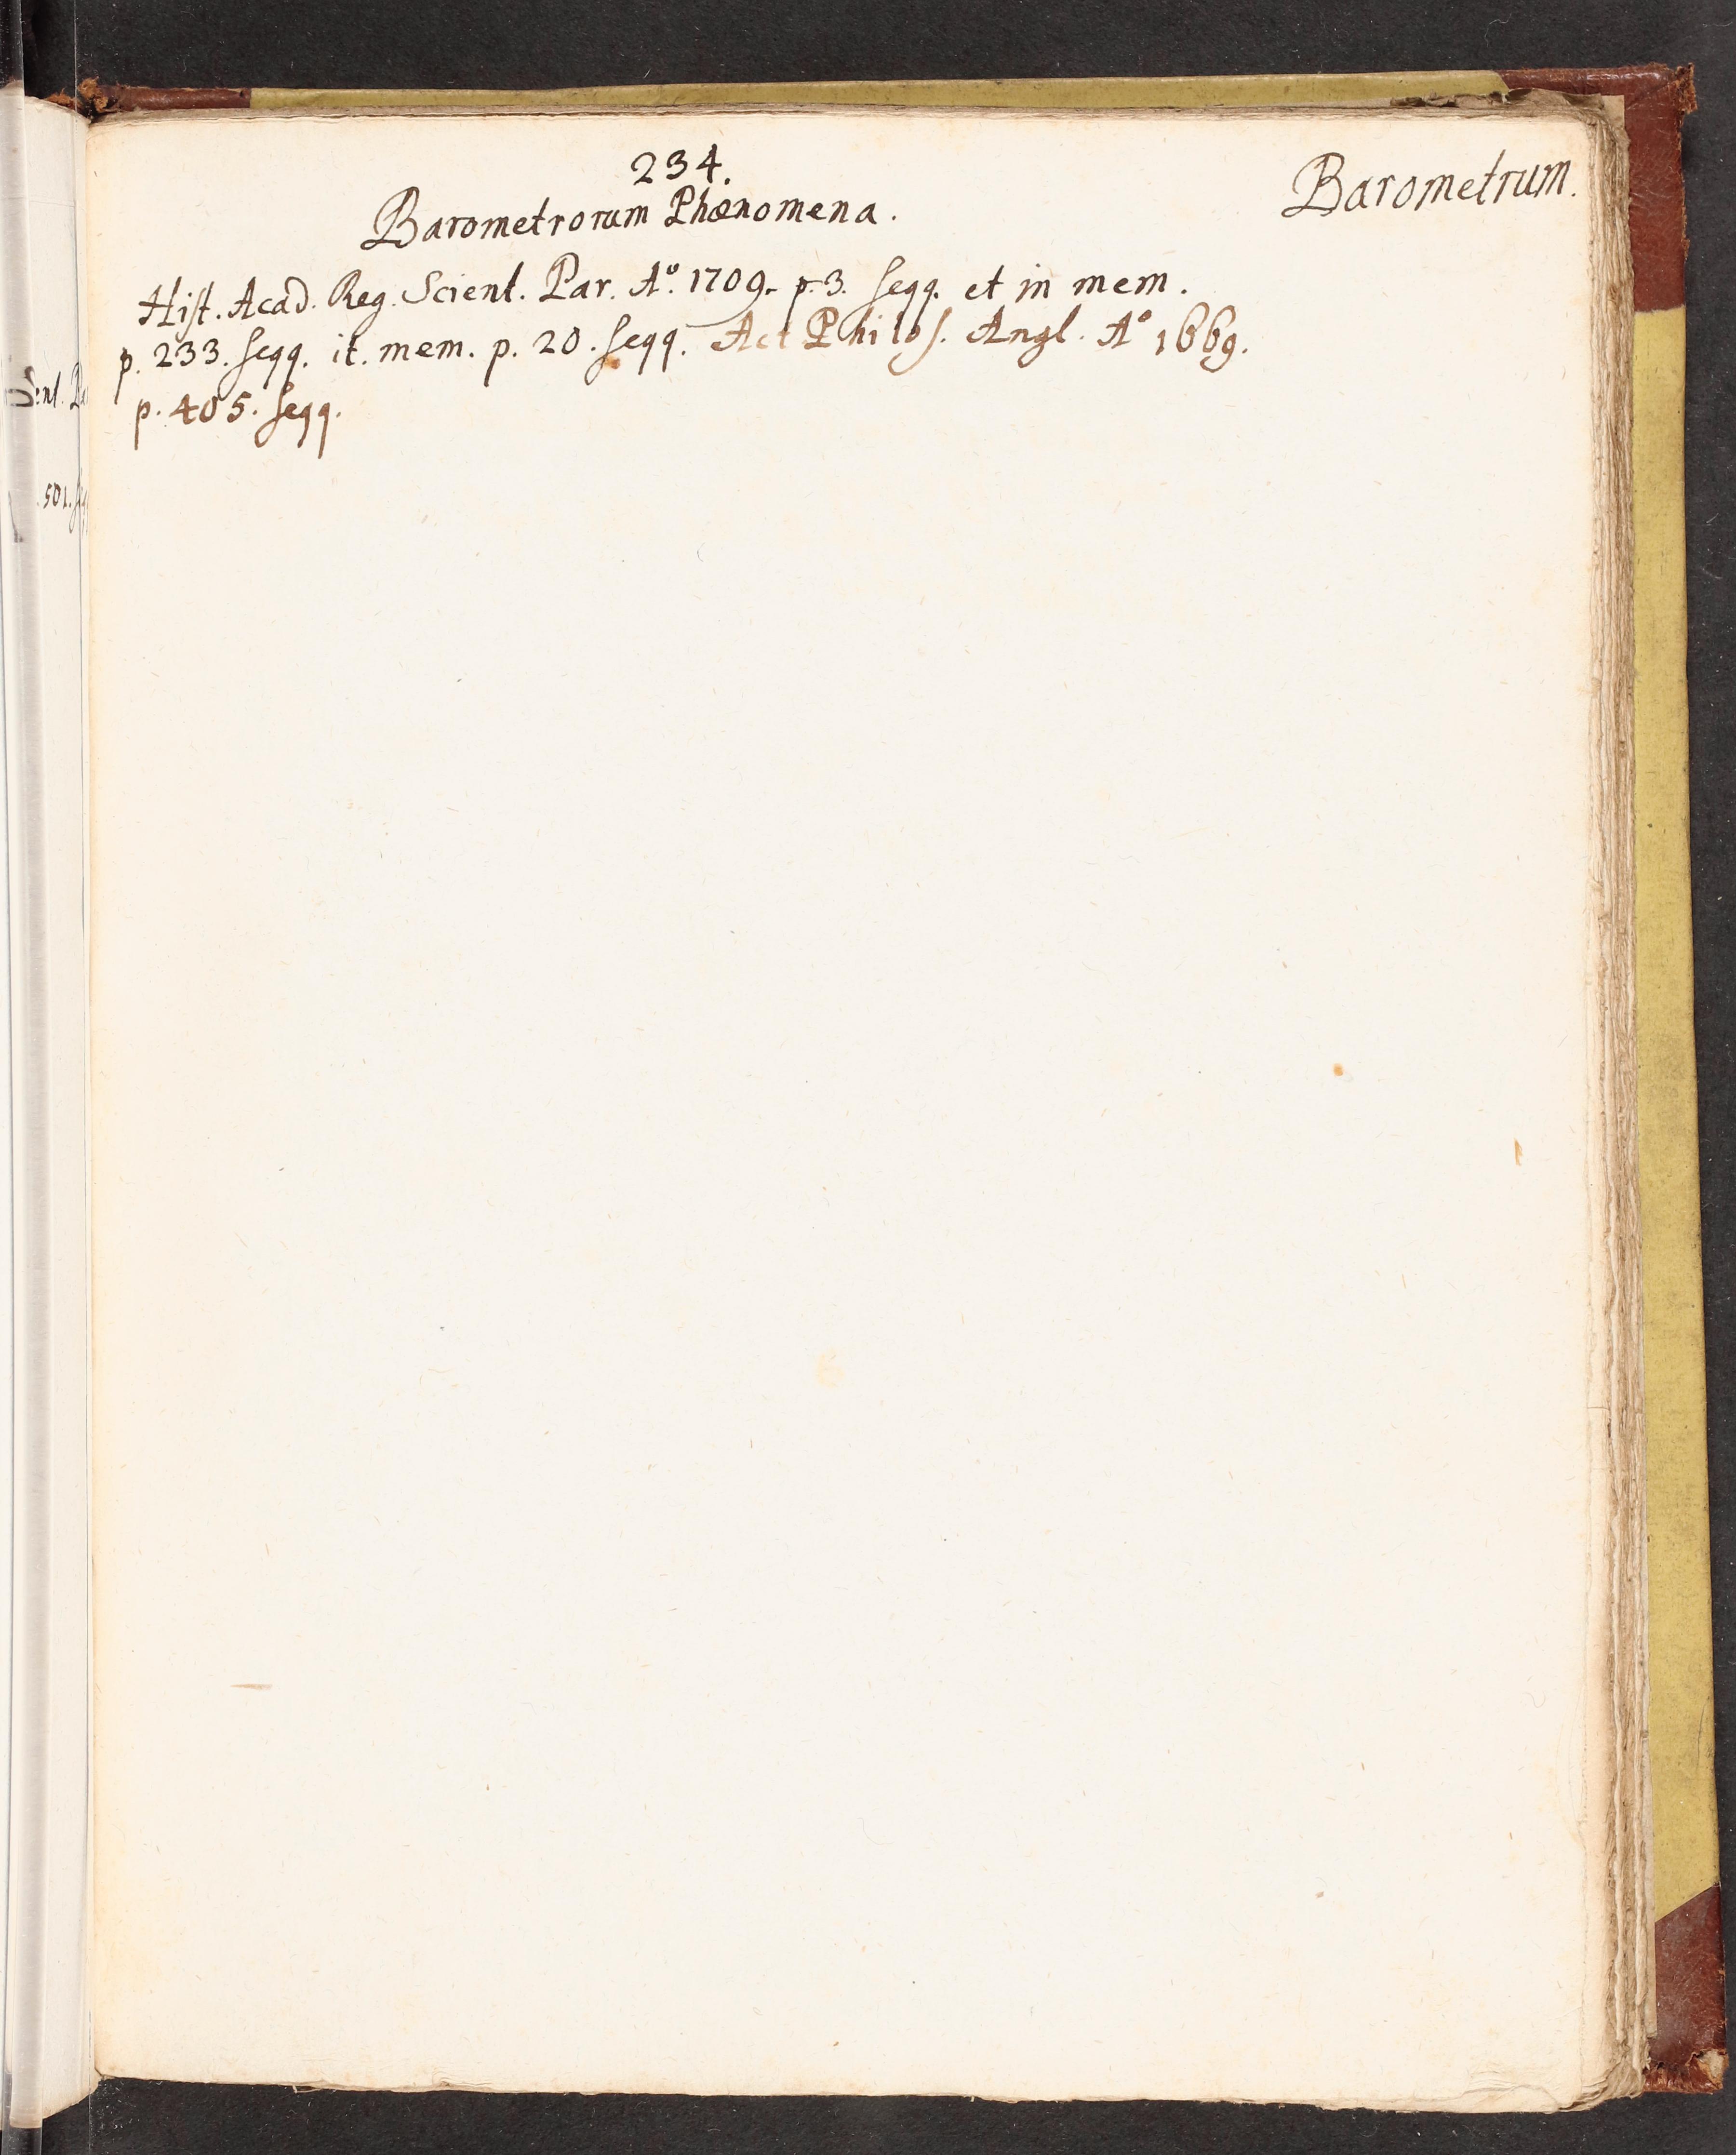 234.
Barometrum.
Barometrorum Phænomena.
Hist. Acad. Reg. Scient. Par. A°. 1709. p. 3. seqq. et in mem.
p. 233. seqq. it. mem. p. 20. seqq. Act Philos. Angl. A° 1669.
p. 405. seqq.
501.